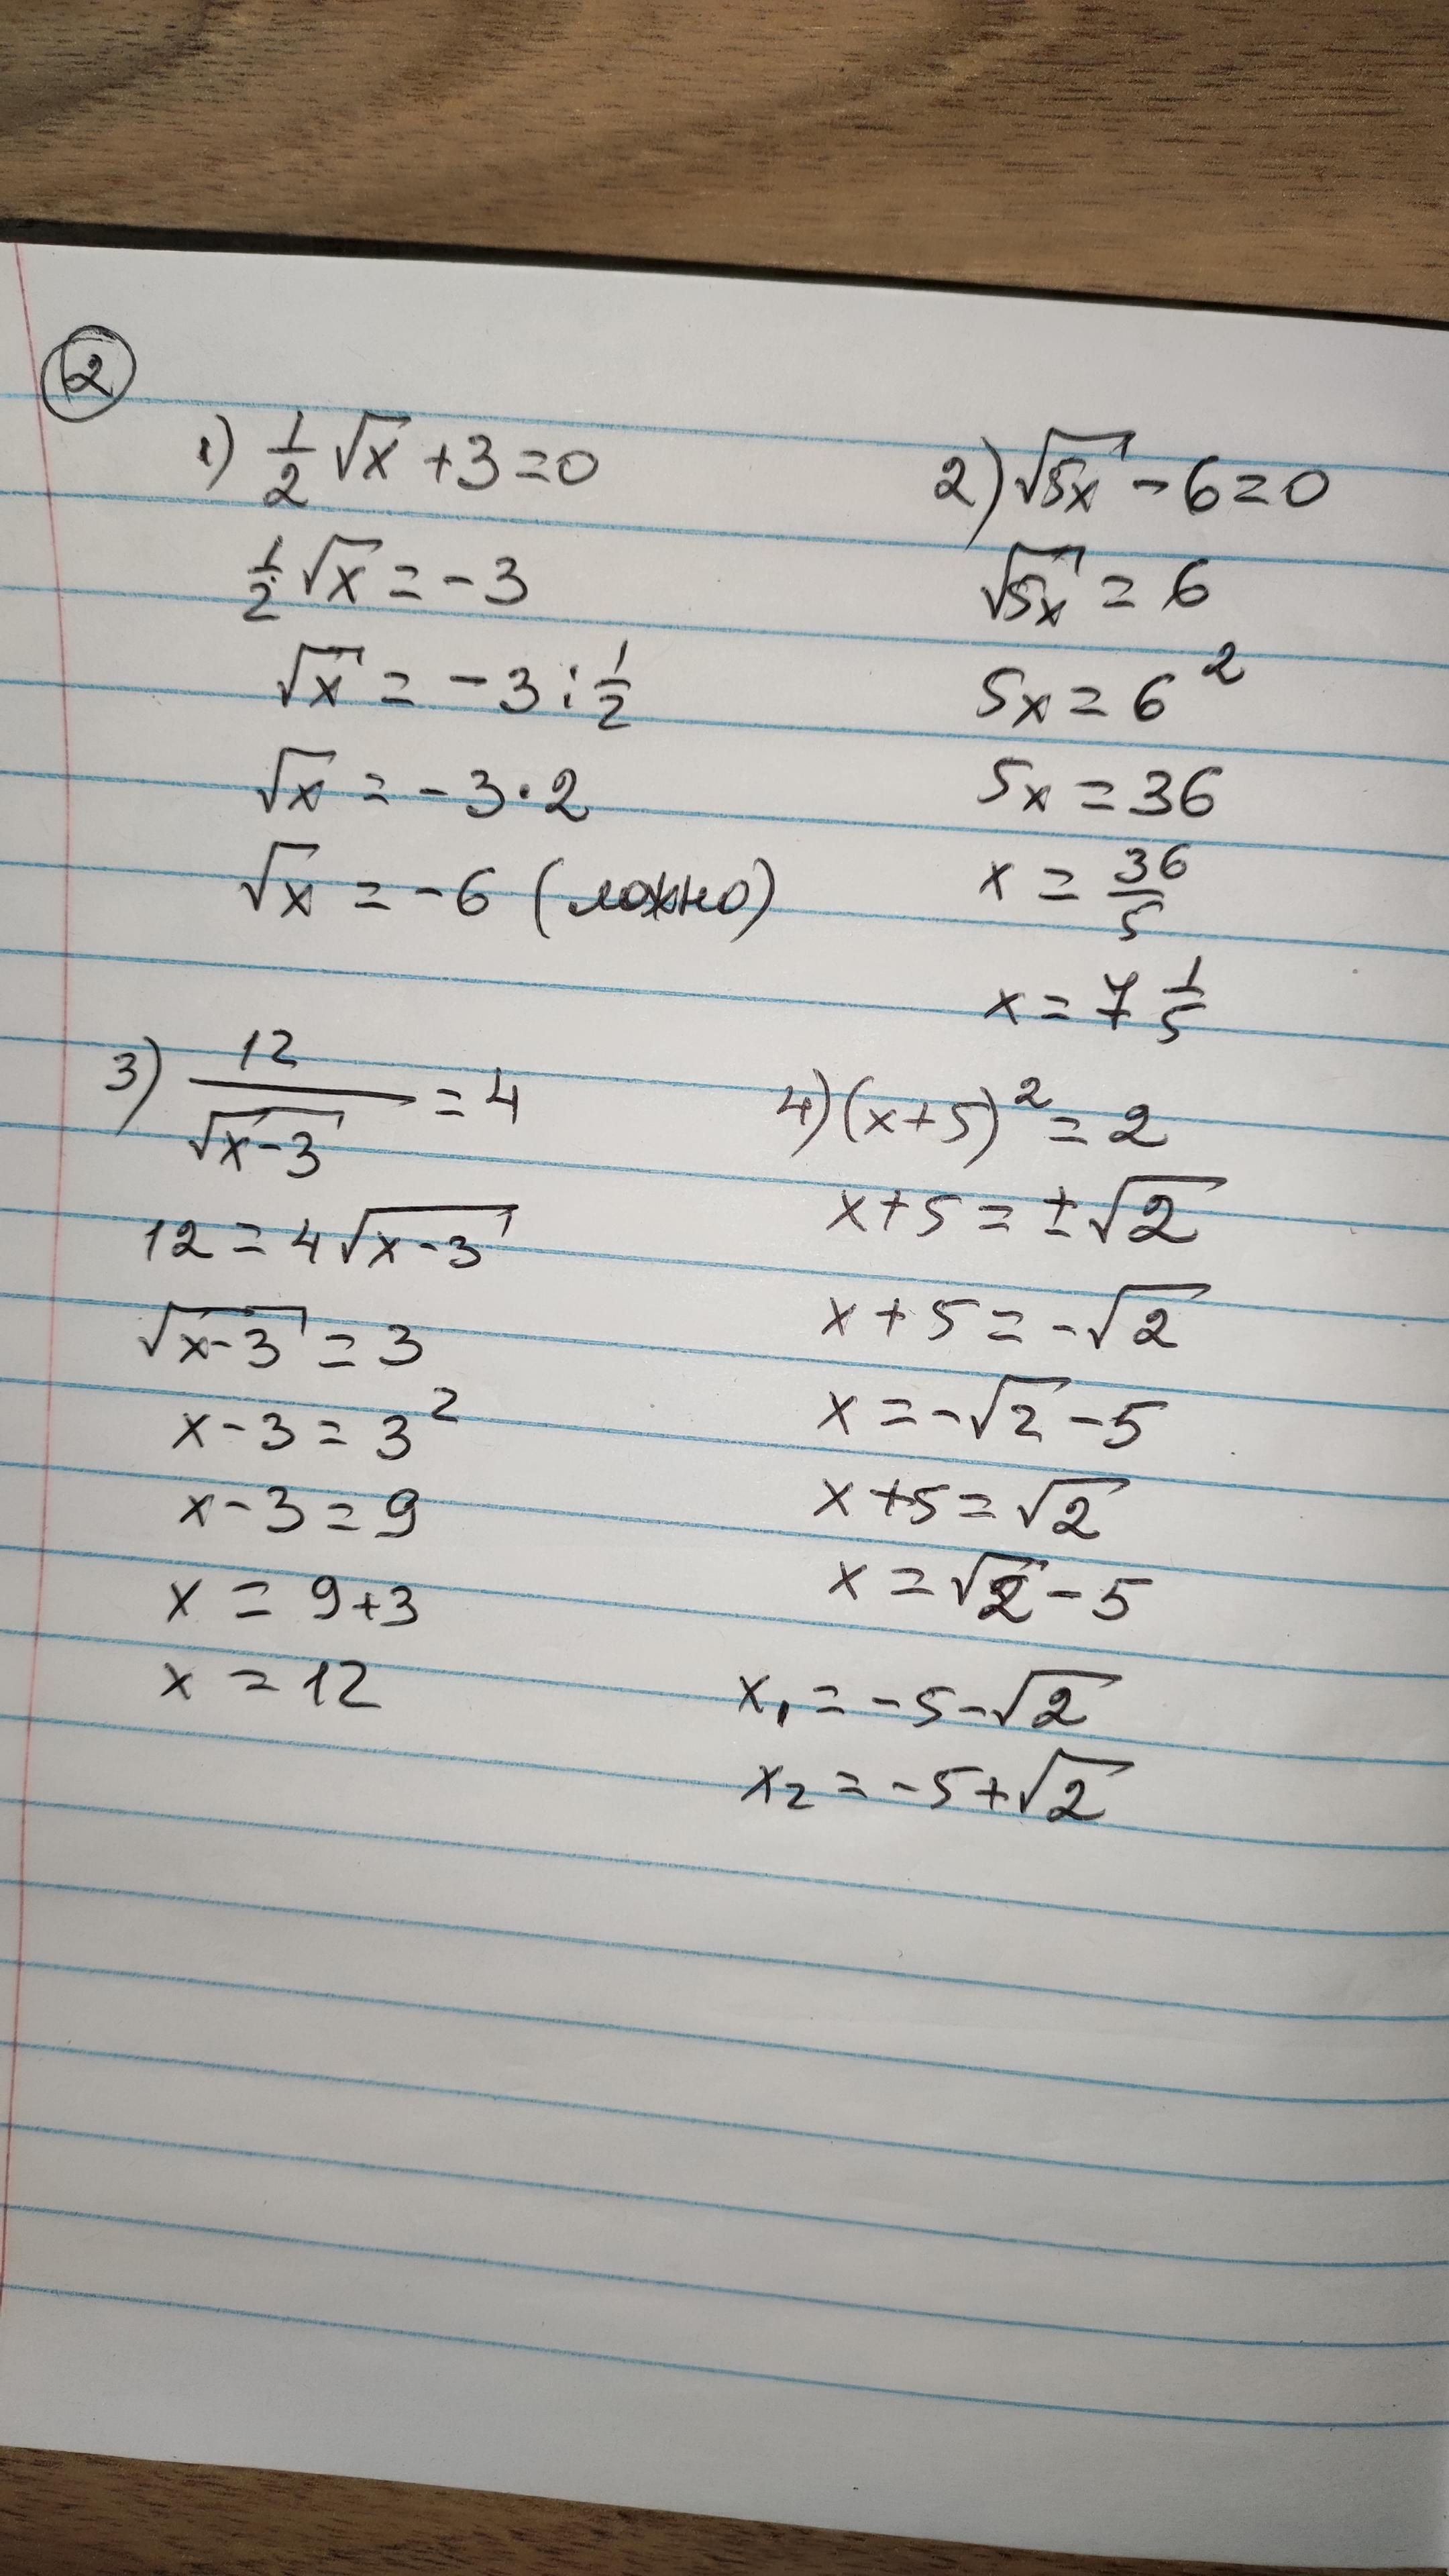 2
1) 1/2 √x + 3 = 0
1/2 √x = -3
√x = -3 : 1/2
√x = -3 · 2
√x = -6 (ложно)
2) √5x - 6 = 0
√5x = 6
5x = 6²
5x = 36
x = 36/5
x = 7 1/5
3) 12/√x-3 = 4
12 = 4√x-3
√x-3 = 3
x - 3 = 3²
x - 3 = 9
x = 9 + 3
x = 12
4) (x+5)² = 2
x + 5 = ±√2
x + 5 = -√2
x = -√2 - 5
x + 5 = √2
x = √2 - 5
x₁ = -5 - √2
x₂ = -5 + √2